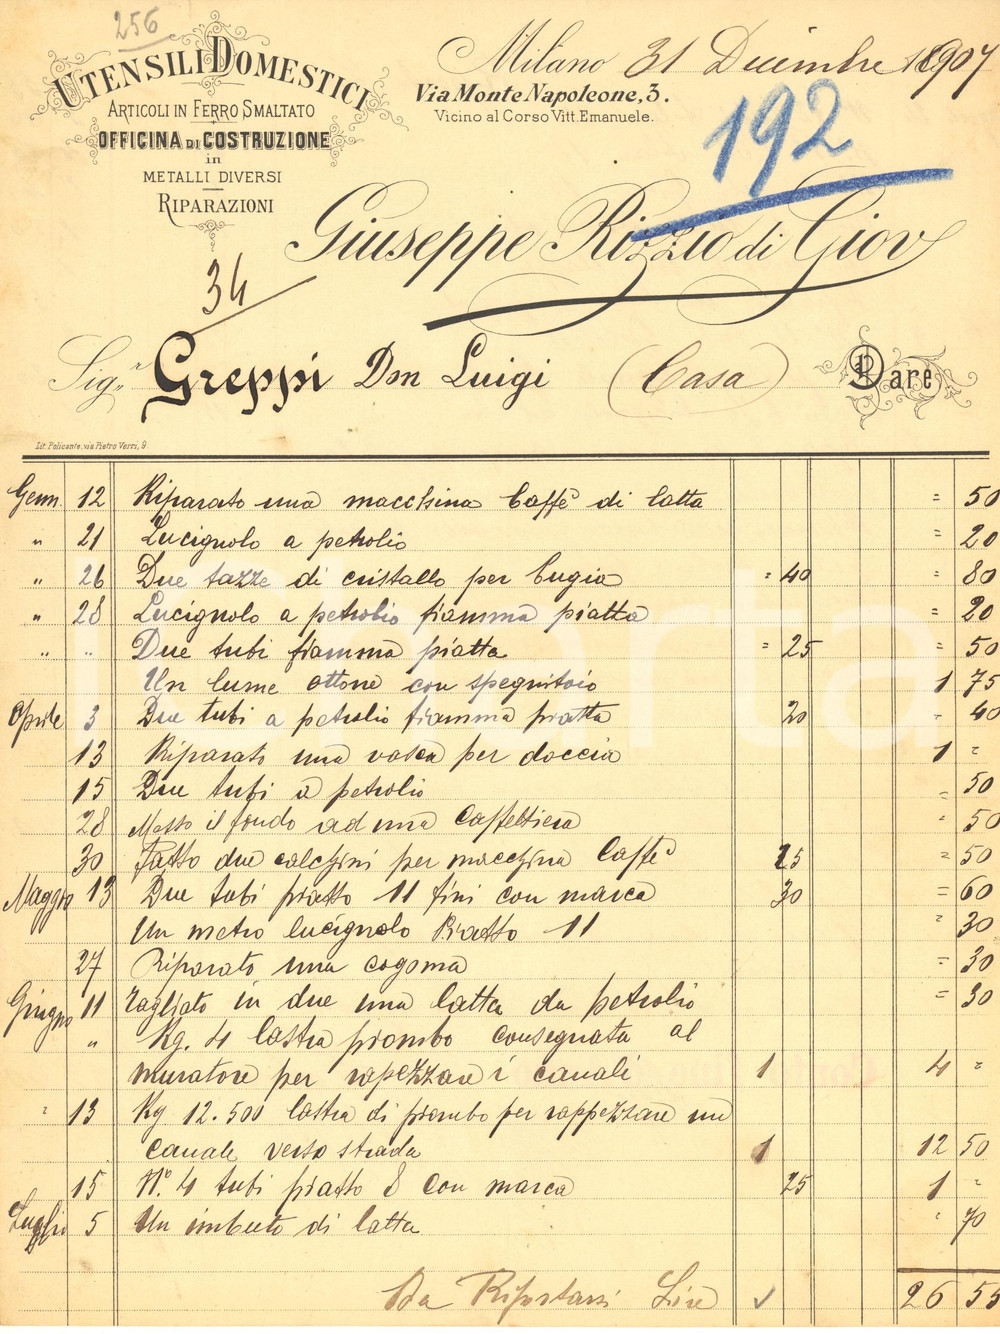 256
UTENSILI DOMESTICI
ARTICOLI IN FERRO SMALTATO
OFFICINA DI COSTRUZIONE
in
METALLI DIVERSI
RIPARAZIONI
Milano 31 Dicembre 1907
Via Monte Napoleone, 3.
Vicino al Corso Vitt. Emanuele.
192
Giuseppe Rizzio di Giov
34
Sig.r Greppi Don Luigi (Casa) Dare
Lit. Policante, via Pietro Verri, 9
Genn. 12 Riparato una macchina Caffè di latta = 50
" 21 Lucignolo a petrolio = 20
" 26 Due tazze di cristallo per bugia = 40 = 80
" 28 Lucignolo a petrolio fiamma piatta = 20
" " Due tubi fiamma piatta = 25 = 50
Un lume ottone con spegnitoio 1 75
Aprile 3 Due tubi a petrolio fiamma piatta 20 - 40
13 Riparato una vasca per doccia 1 =
15 Due tubi a petrolio = 50
28 Messo il fondo ad una Caffettiera = 50
30 Fatto due calchini per macchina Caffè 25 = 50
Maggio 13 Due tubi piatto 11 fini con marca 30 = 60
Un metro lucignolo Piatto 11 " 30
27 Riparato una cogoma = 30
Giugno 11 Tagliato in due una latta da petrolio = 30
" Kg. 4 lastra piombo consegnata al
muratore per rapezzare i canali 1 4 =
" 13 Kg 12.500 lastra di piombo per rappezzare un
canale verso strada 1 12 50
15 N.° 4 tubi piatto 8 con marca 25 1 "
Luglio 5 Un imbuto di latta " 70
Da Riportarsi Lire 26 55
Charta